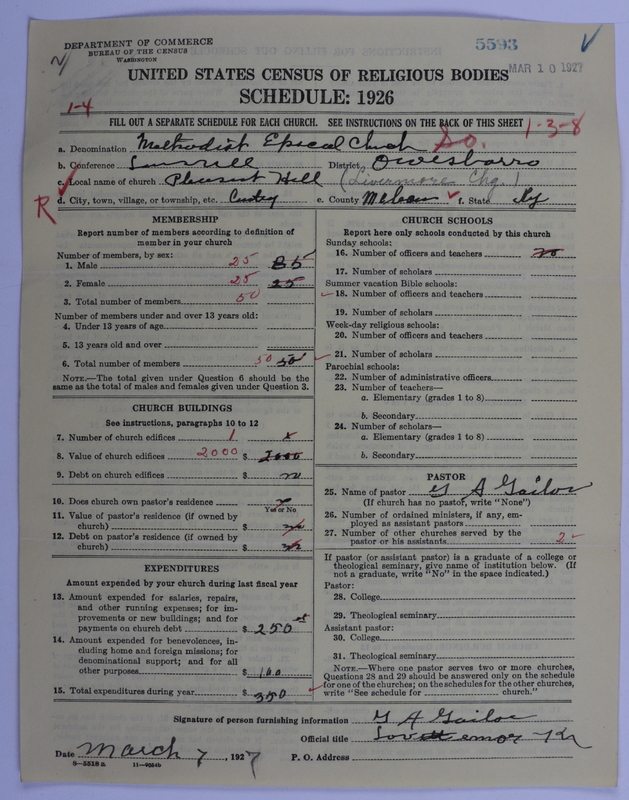 DEPARTMENT OF COMMERCE
BUREAU OF THE CENSUS
WASHINGTON
5593
MAR 10 1927
UNITED STATES CENSUS OF RELIGIOUS BODIES
SCHEDULE: 1926
1-4
FILL OUT A SEPARATE SCHEDULE FOR EACH CHURCH. SEE INSTRUCTIONS ON THE BACK OF THIS SHEET
1-3-8
a. Denomination Methodist Episcal Chuch So.
b. Conference District Owesborro
c. Local name of church Pleasant Hill (Livermore Chg.)
R
d. City, town, village, or township, etc. e. County McLean f. State Ky
MEMBERSHIP
Report number of members according to definition of member in your church
Number of members, by sex:
1. Male 25
2. Female 25 25
3. Total number of members 50
Number of members under and over 13 years old:
4. Under 13 years of age
5. 13 years old and over
6. Total number of members 50 50
NOTE.—The total given under Question 6 should be the same as the total of males and females given under Question 3.
CHURCH BUILDINGS
See instructions, paragraphs 10 to 12
7. Number of church edifices 1 x
8. Value of church edifices 2000 $ 2000
9. Debt on church edifices $ no
10. Does church own pastor's residence
Yes or No
11. Value of pastor's residence (if owned by church) $
12. Debt on pastor's residence (if owned by church) $
EXPENDITURES
Amount expended by your church during last fiscal year
13. Amount expended for salaries, repairs, and other running expenses; for improvements or new buildings; and for payments on church debt $ 250
14. Amount expended for benevolences, including home and foreign missions; for denominational support; and for all other purposes $ 100
15. Total expenditures during year $ 350
CHURCH SCHOOLS
Report here only schools conducted by this church
Sunday schools:
16. Number of officers and teachers
17. Number of scholars
Summer vacation Bible schools:
18. Number of officers and teachers
19. Number of scholars
Week-day religious schools:
20. Number of officers and teachers
21. Number of scholars
Parochial schools:
22. Number of administrative officers
23. Number of teachers—
a. Elementary (grades 1 to 8)
b. Secondary
24. Number of scholars—
a. Elementary (grades 1 to 8)
b. Secondary
PASTOR
25. Name of pastor G A Gailor
(If church has no pastor, write "None")
26. Number of ordained ministers, if any, employed as assistant pastors
27. Number of other churches served by the pastor or his assistants 2
If pastor (or assistant pastor) is a graduate of a college or theological seminary, give name of institution below. (If not a graduate, write "No" in the space indicated.)
Pastor:
28. College
29. Theological seminary
Assistant pastor:
30. College
31. Theological seminary
NOTE.—Where one pastor serves two or more churches, Questions 28 and 29 should be answered only on the schedule for one of the churches; on the schedules for the other churches, write "See schedule for church."
Signature of person furnishing information G A Gailor
Official title
Date March 7, 1927 P. O. Address
8-5518a 11-9664b